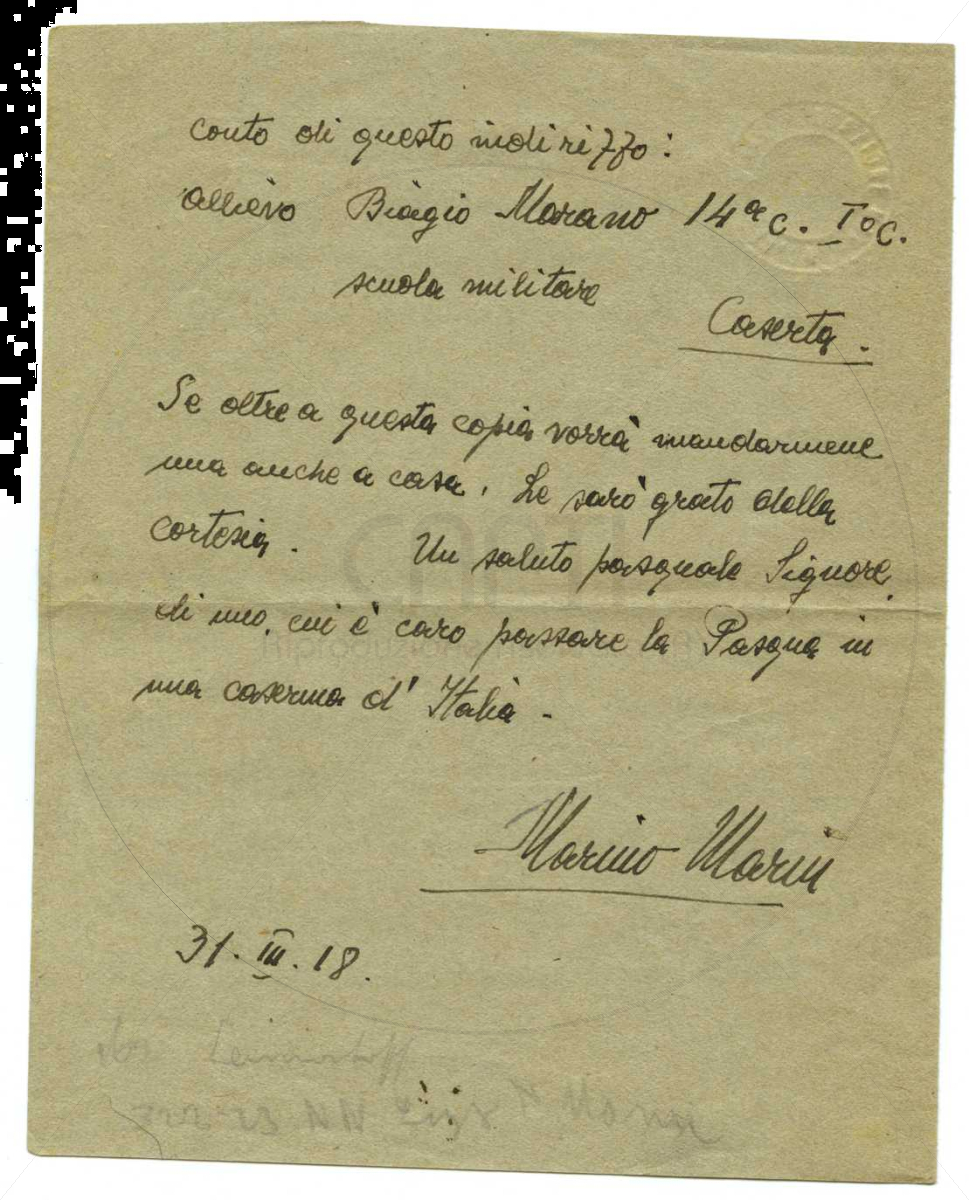 conto di questo indirizzo:
allievo Biagio Marano 14ª c. Iº C.
scuola militare
Caserta.
Se oltre a questa copia vorrà mandarmene
una anche a casa, Le sarò grato della
cortesia. Un saluto pasquale Signore,
di uno, cui è caro passare la Pasqua in
una caserma d'Italia.
Marino Marin
31.III.18.